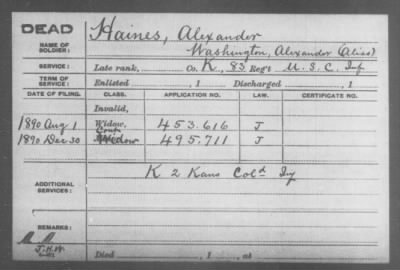 DEAD
Haines, Alexander
NAME OF SOLDIER:
Washington, Alexander (Alias)
SERVICE: Late rank, Co. K, 83 Reg't U.S.C. Inf
TERM OF SERVICE: Enlisted , 1 Discharged , 1
DATE OF FILING. CLASS. APPLICATION NO. LAW. CERTIFICATE NO.
Invalid,
1890 Aug 1 Widow, 453.616 J
1890 Dec 30 Cont Widow 495.711 J
K 2 Kans Col'd Inf
ADDITIONAL SERVICES:
REMARKS:
J.H.W.
Died , 1 , at